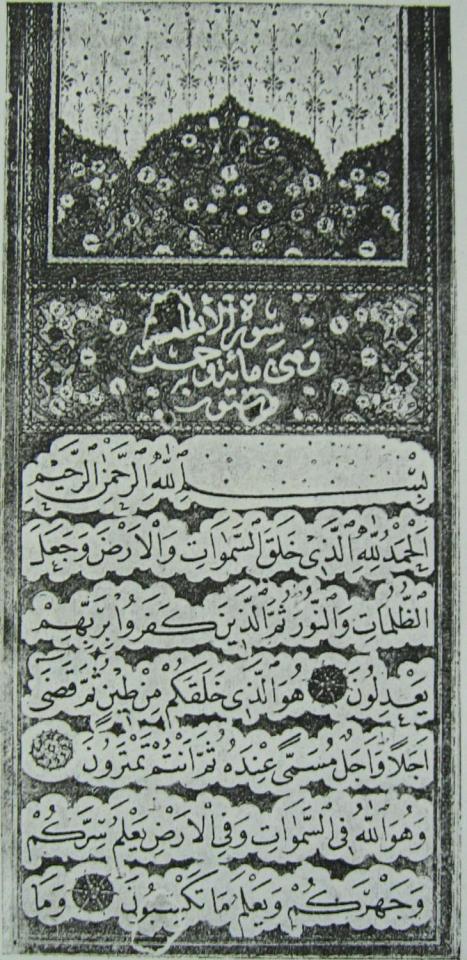 سورة الأنعام
وهى مائة
بِسْمِ اللّٰهِ الرَّحْمٰنِ الرَّحِيمِ
اَلْحَمْدُ لِلّٰهِ الَّذِى خَلَقَ السَّمٰوَاتِ وَالْاَرْضَ وَجَعَلَ
الظُّلُمَاتِ وَالنُّورَ ثُمَّ الَّذِينَ كَفَرُوا بِرَبِّهِمْ
يَعْدِلُونَ هُوَ الَّذِى خَلَقَكُمْ مِنْ طِينٍ ثُمَّ قَضٰى
اَجَلًا وَاَجَلٌ مُسَمًّى عِنْدَهُ ثُمَّ اَنْتُمْ تَمْتَرُونَ
وَهُوَ اللّٰهُ فِى السَّمٰوَاتِ وَفِى الْاَرْضِ يَعْلَمُ سِرَّكُمْ
وَجَهْرَكُمْ وَيَعْلَمُ مَا تَكْسِبُونَ وَمَا